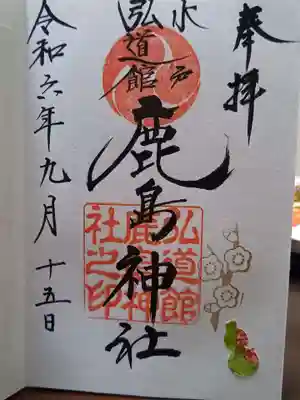 奉拝
水戸
弘道館
鹿島神社
弘道館
鹿島神
社之印
令和六年九月十五日